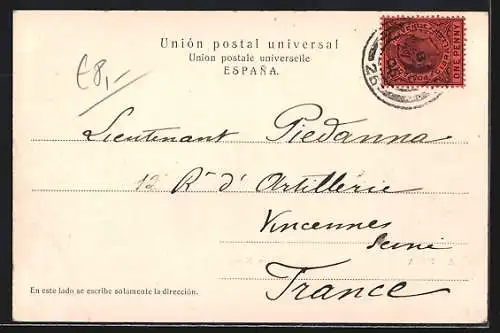 Unión postal universal
Union postale universelle
ESPAÑA.
€8,-
ONE PENNY
26
Lieutenant Piedanna
12 Rt d'Artillerie
Vincennes
Seine
France
En este lado se escribe solamente la dirección.